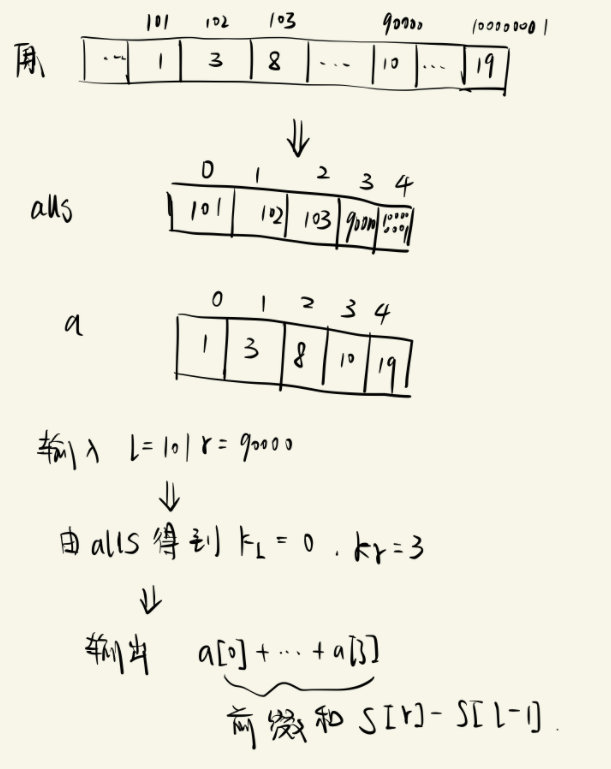 101 102 103 90000 10000001
原 ... 1 3 8 ... 10 ... 19
0 1 2 3 4
alls 101 102 103 90000 10000001
0 1 2 3 4
a 1 3 8 10 19
输入 l=101 r=90000
由 alls 得到 kL=0 , kr=3
输出 a[0]+...+a[3]
前缀和 S[r]-S[l-1].